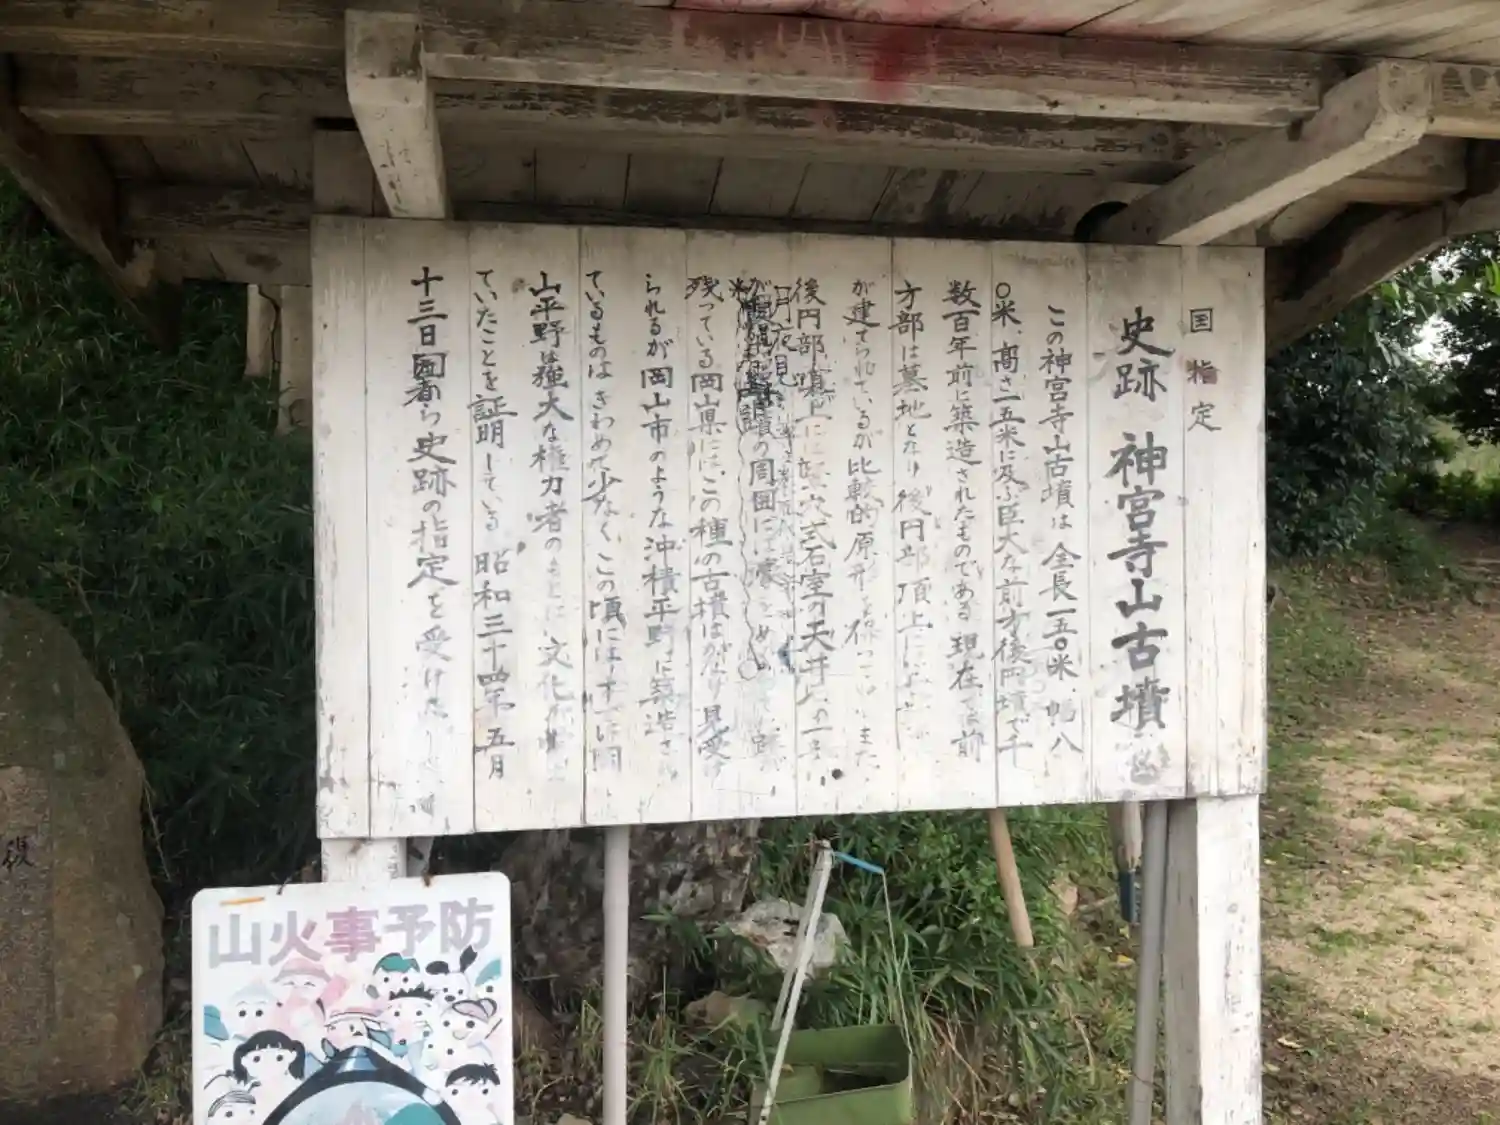 国指定
史跡 神宮寺山古墳
この神宮寺山古墳は全長一五〇米、幅八
〇米、高さ一五米に及ぶ巨大な前方後円墳で千
数百年前に築造されたものである 現在では前
方部は墓地となり後円部頂上に
が建てられているが比較的原形を保って また
後円部墳上には竪穴式石室の天井石の一
の周囲には
残っている岡山県には、この種の古墳はかなり見受け
られるが岡山市のような沖積平野に築造さ
ているものはきわめて少なく、この頃にはすでに岡
山平野は強大な権力者のもとに文化が
ていたことを証明している 昭和三十四年五月
十三日国から史跡の指定を受けた
山火事予防